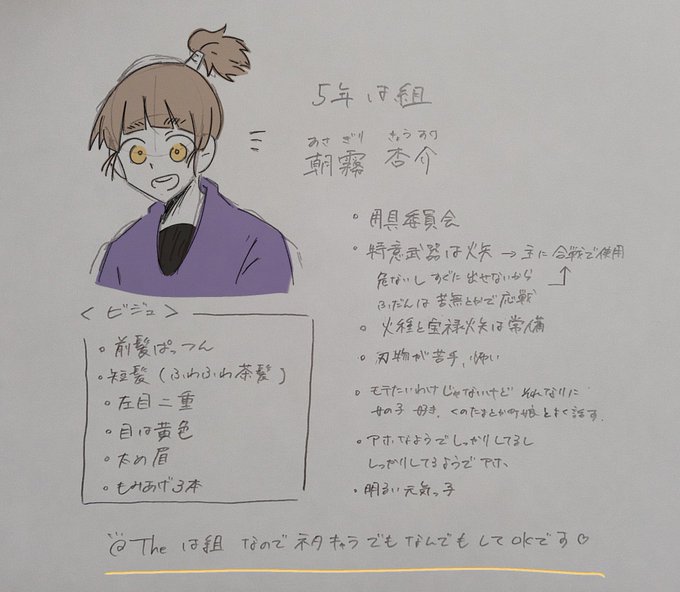 5年 は組
あさ ぎり きょう すけ
朝霧 杏介
・用具委員会
・特意武器は火矢 → 主に合戦で使用
危ないし すぐに出せないから
ふだんは 苦無とかで 応戦
・火種と宝禄火矢は常備
・刃物が苦手、怖い
・モテたいわけじゃないけど それなりに
女の子 好き。くのたまとか町娘とよく話す。
・アホなようでしっかりしてるし
しっかりしてるようでアホ、
・明るい元気っ子
<ビジュ>
・前髪ぱっつん
・短髪(ふわふわ茶髪)
・左目二重
・目は黄色
・太め眉
・もみあげ3本
The は組 なので ネタキャラでもなんでもしてOKです♡